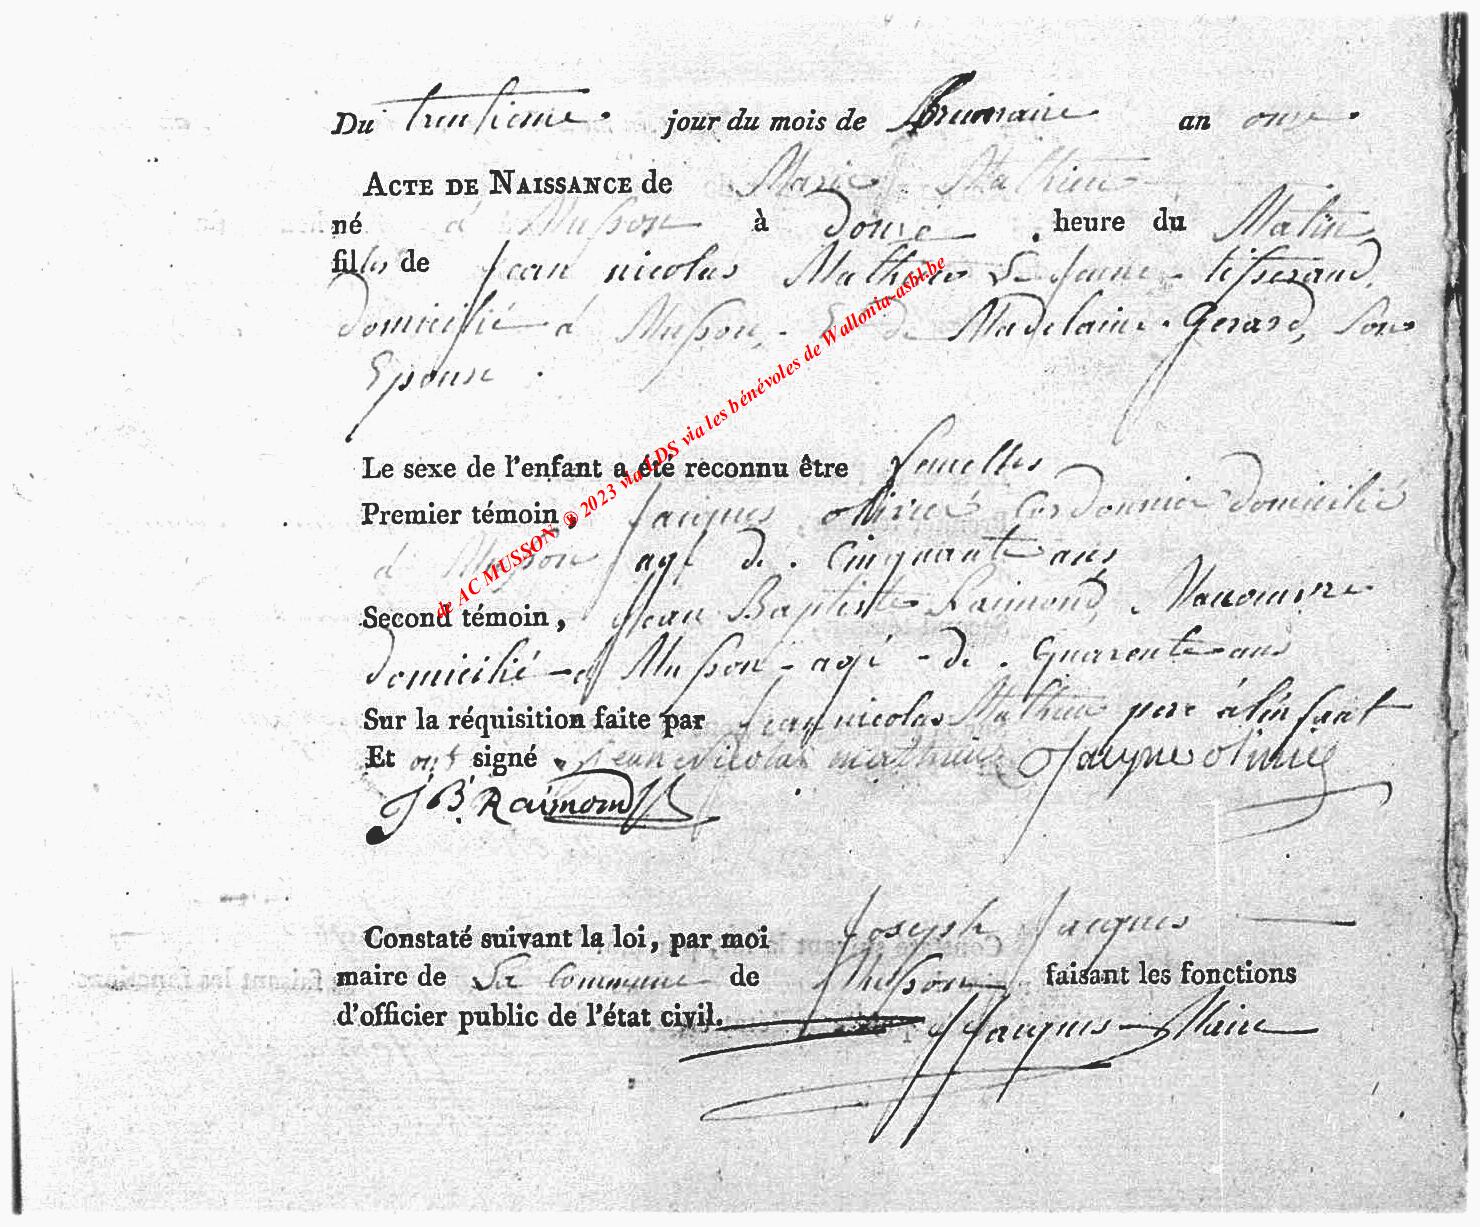 Du trentieme jour du mois de Brumaire an onze
ACTE DE NAISSANCE de Marie Mathieu
né à Musson à Douze heure du Matin
filles de Jean nicolas Mathieu Le Jeune tisserand
domicilié à Musson, Et de Madelaine Gerard, Son
Epouse.
Le sexe de l'enfant a été reconnu être femelle
Premier témoin, Jacques olivié Cordonnie domicilié
à Musson agé de Cinquante ans
Second témoin, Jean Baptiste Raimond
domicilié à Musson agé de quarente ans
Sur la réquisition faite par Jean nicolas Mathieu pere à l'enfant
Et ont signé Jean Nicolas mathieu Jacque olivié
J B Raimond
Constaté suivant la loi, par moi Joseph Jacques
maire de La Commune de Musson faisant les fonctions
d'officier public de l'état civil. J Jacques Maire
de AC MUSSON ® 2023 via LDS via les bénévoles de Wallonia-asbl.be